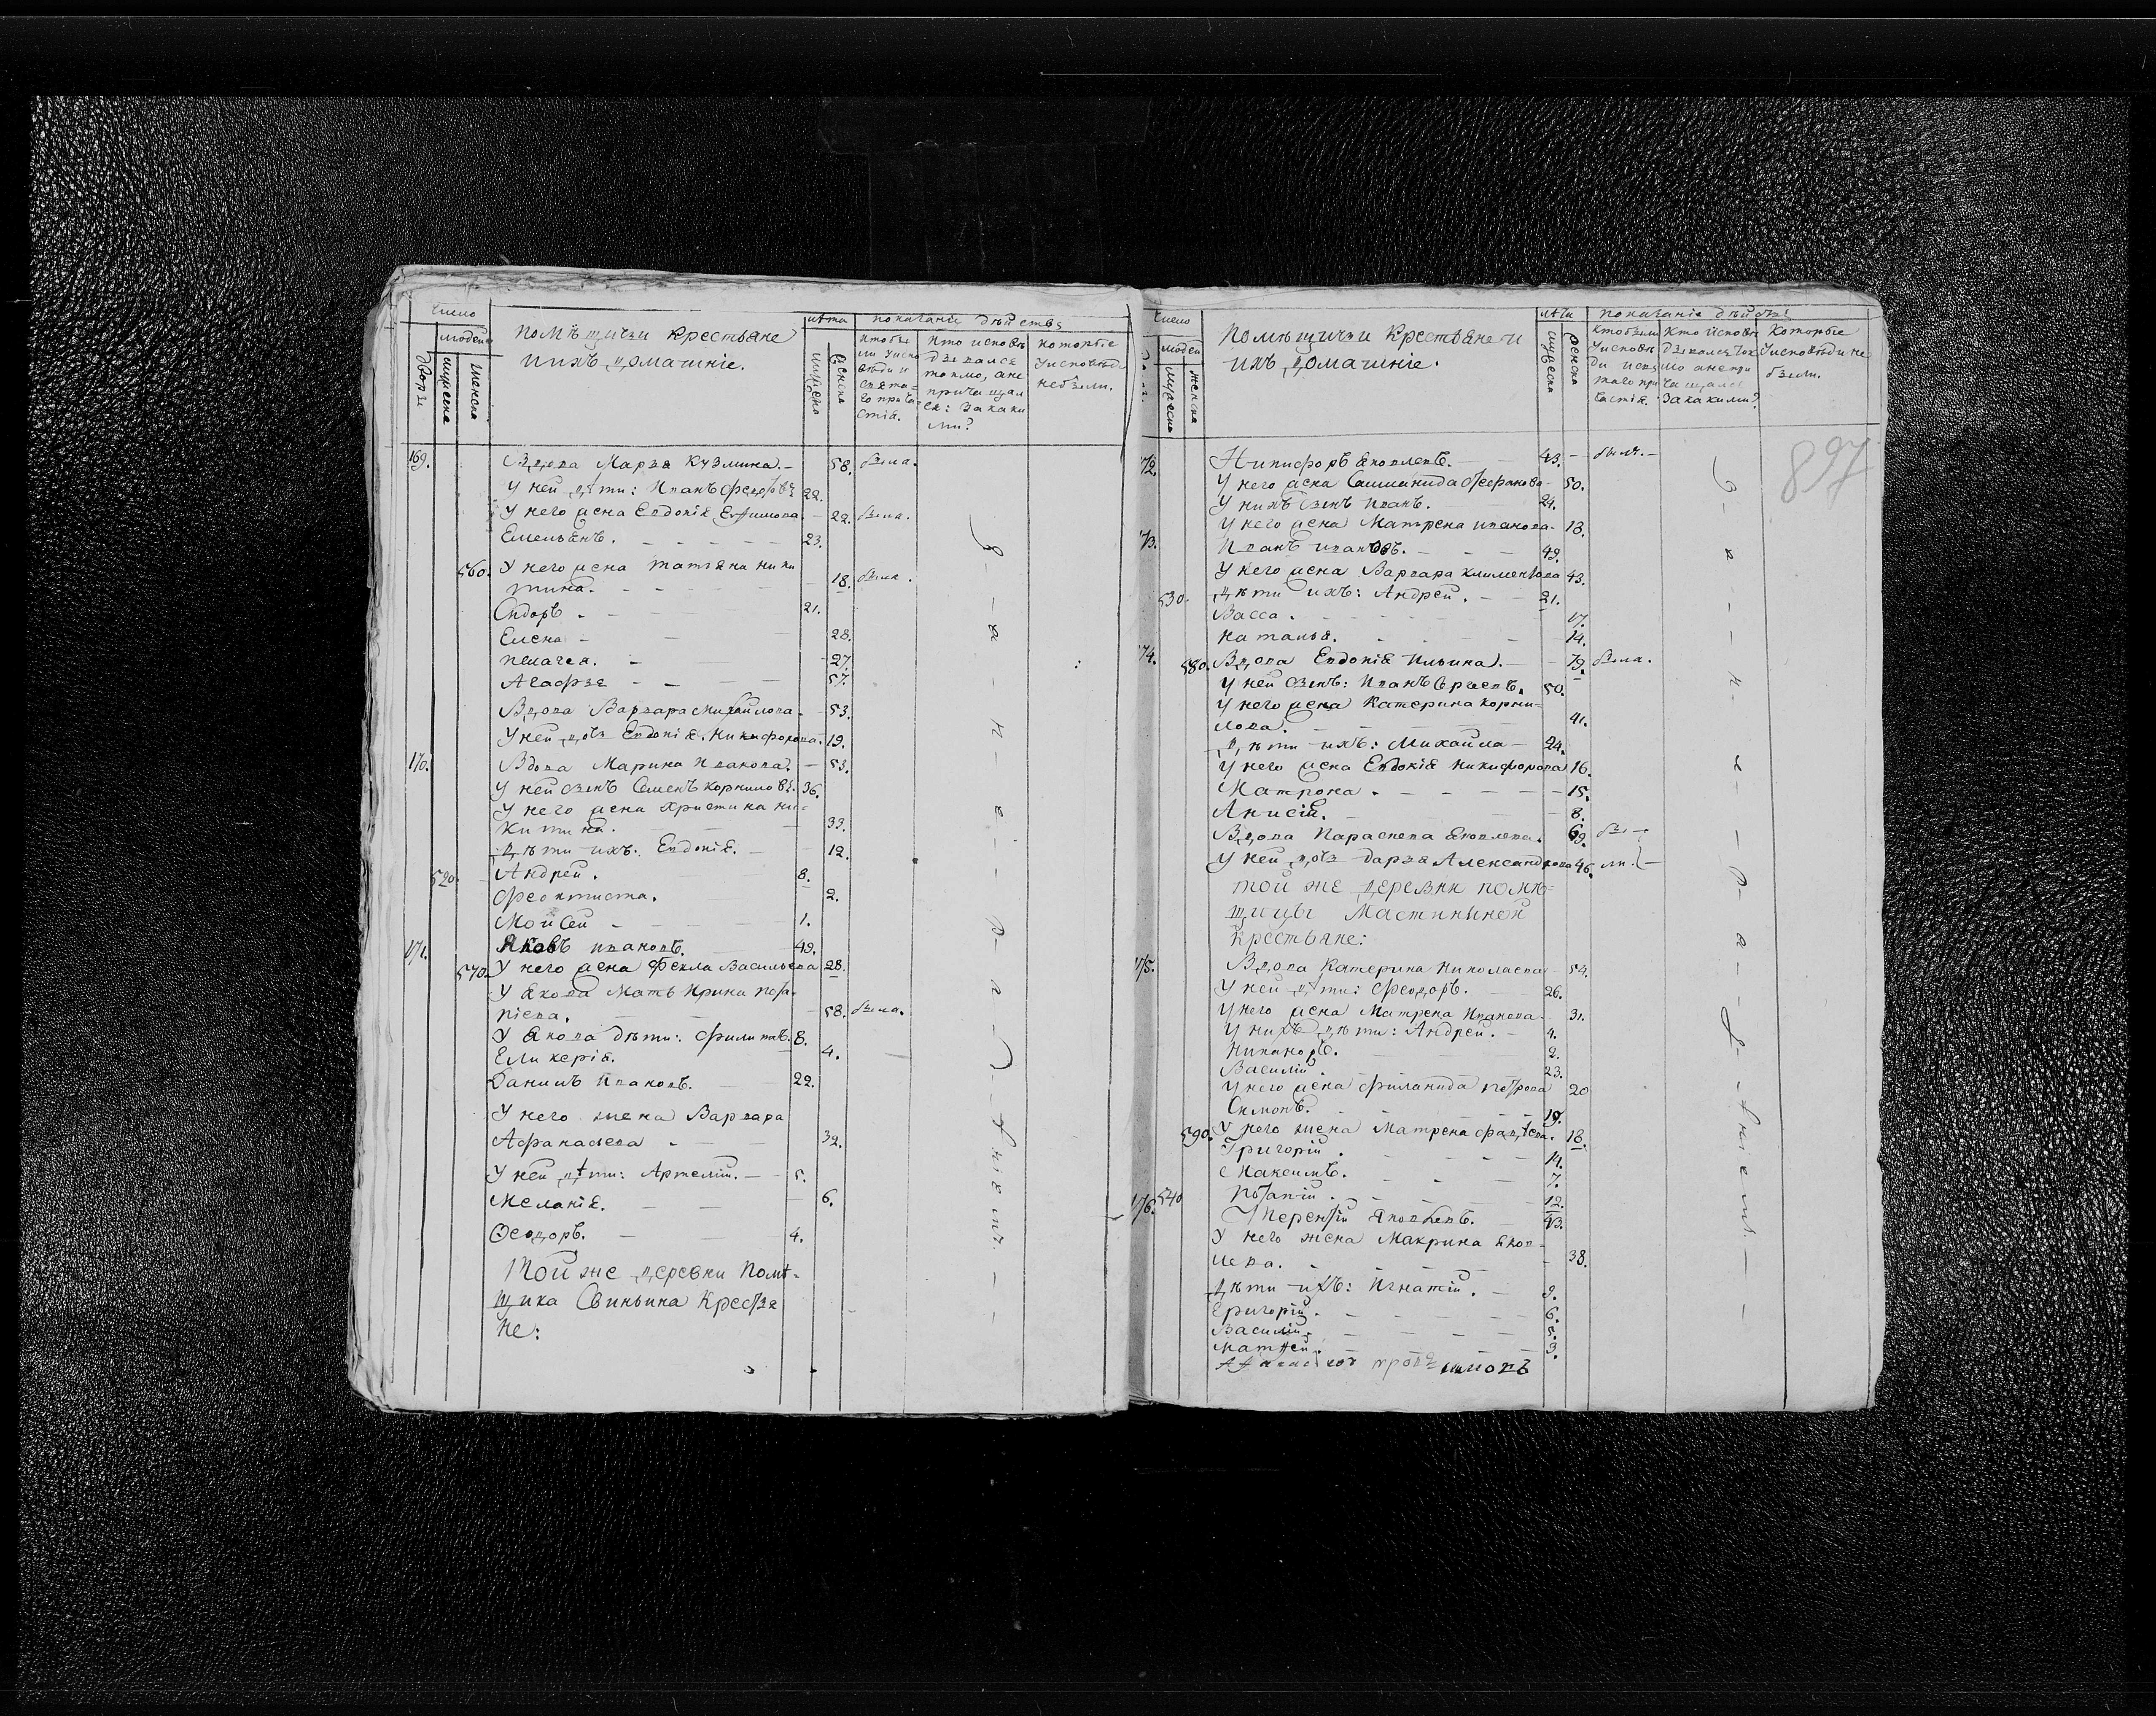 Число
людей
дворы
мужеска
женска
Помѣщичьи крестьяне
и ихъ домашніе.
лѣта
мужеска
женска
показаніе дѣйствъ
кто бы
ли у испо
вѣди и
свята
го прича
стія.
кто исповѣ
дывался
токмо, а не
причащал
ся: за каки
ми?
которые
у исповѣди
не были.
169. Вдова Марья Кузмина. 58. была.
У ней дѣти: Иванъ Федоровъ 22.
У него жена Евдокія Ефимова. 22. была.
Емельянъ. 23.
560. У него жена Татьяна Ники
тина. 18. была.
Сидоръ 21.
Елена 28.
Пелагея. 27.
Агафья 57.
Вдова Варвара Михайлова 53.
У ней дочь Евдокія Никифорова. 19.
170. Вдова Марина Иванова. 53.
У ней сынъ Семенъ Корниловъ. 36.
У него жена Христина Ни-
китина. 33.
Дѣти ихъ: Евдокія. 12.
520. Андрей. 8.
Феоктиста. 2.
Мойсей 1.
171. Яковъ Ивановъ. 49.
570. У него жена Фекла Васильева 28.
У Якова мать Ирина
58. была.
У Якова дѣти: Филиппъ. 8.
Гликерія. 4.
Данилъ Ивановъ. 22.
У него жена Варвара
Афанасьева 32.
У ней дѣти: Артемій. 5.
Меланія. 6.
Ѳеодоръ. 4.
Той же деревни помѣ-
щика Свиньина крестья
не:
Число
людей
мужеска
женска
Помѣщичьи крестьяне и
ихъ домашніе.
лѣта
мужеска
женска
показаніе дѣйствъ
кто были
у исповѣ
ди и свя
таго при
частія.
кто исповѣ
дывался ток
мо а не при
чащался
за какими?
которые
у исповѣди не
были.
897
172. Никифоръ Яковлевъ. 43. былъ.
У него жена Саломонида Стефанова 50.
У нихъ сынъ Иванъ. 24.
У него жена Матрена Иванова 18.
173. Иванъ Ивановъ. 49.
У него жена Варвара Климентова 43.
530. Дѣти ихъ: Андрей. 21.
Васса. 17.
Наталья. 14.
174. 580. Вдова Евдокія Ильина. 79. была.
У ней сынъ: Иванъ Сергеевъ. 50.
У него жена Катерина Корни-
лова. 41.
Дѣти ихъ: Михайла 24.
У него жена Евдокія Никифорова 16.
Матрона. 15.
Анисія. 8.
Вдова Параскева Яковлева. 69. бы-
У ней дочь Дарья Александрова 46. ли.
Той же деревни помѣ-
щицы Мастининей
крестьяне:
175. Вдова Катерина Николаева 54.
У ней дѣти: Феодоръ. 26.
У него жена Матрена Иванова 31.
У нихъ дѣти: Андрей. 4.
Никаноръ. 2.
Василій. 23.
У него жена Филанида Петрова 20
Симонъ. 19.
590. У него жена Матрена Фадѣева. 18.
Григорій. 14.
Максимъ. 7.
540 Потапій. 12.
176. Терентій Яковлевъ. 43.
У него жена Макрина Яков-
лева. 38.
Дѣти ихъ: Игнатій. 9.
Григорій. 6.
Василій. 5.
Матѳей. 3.